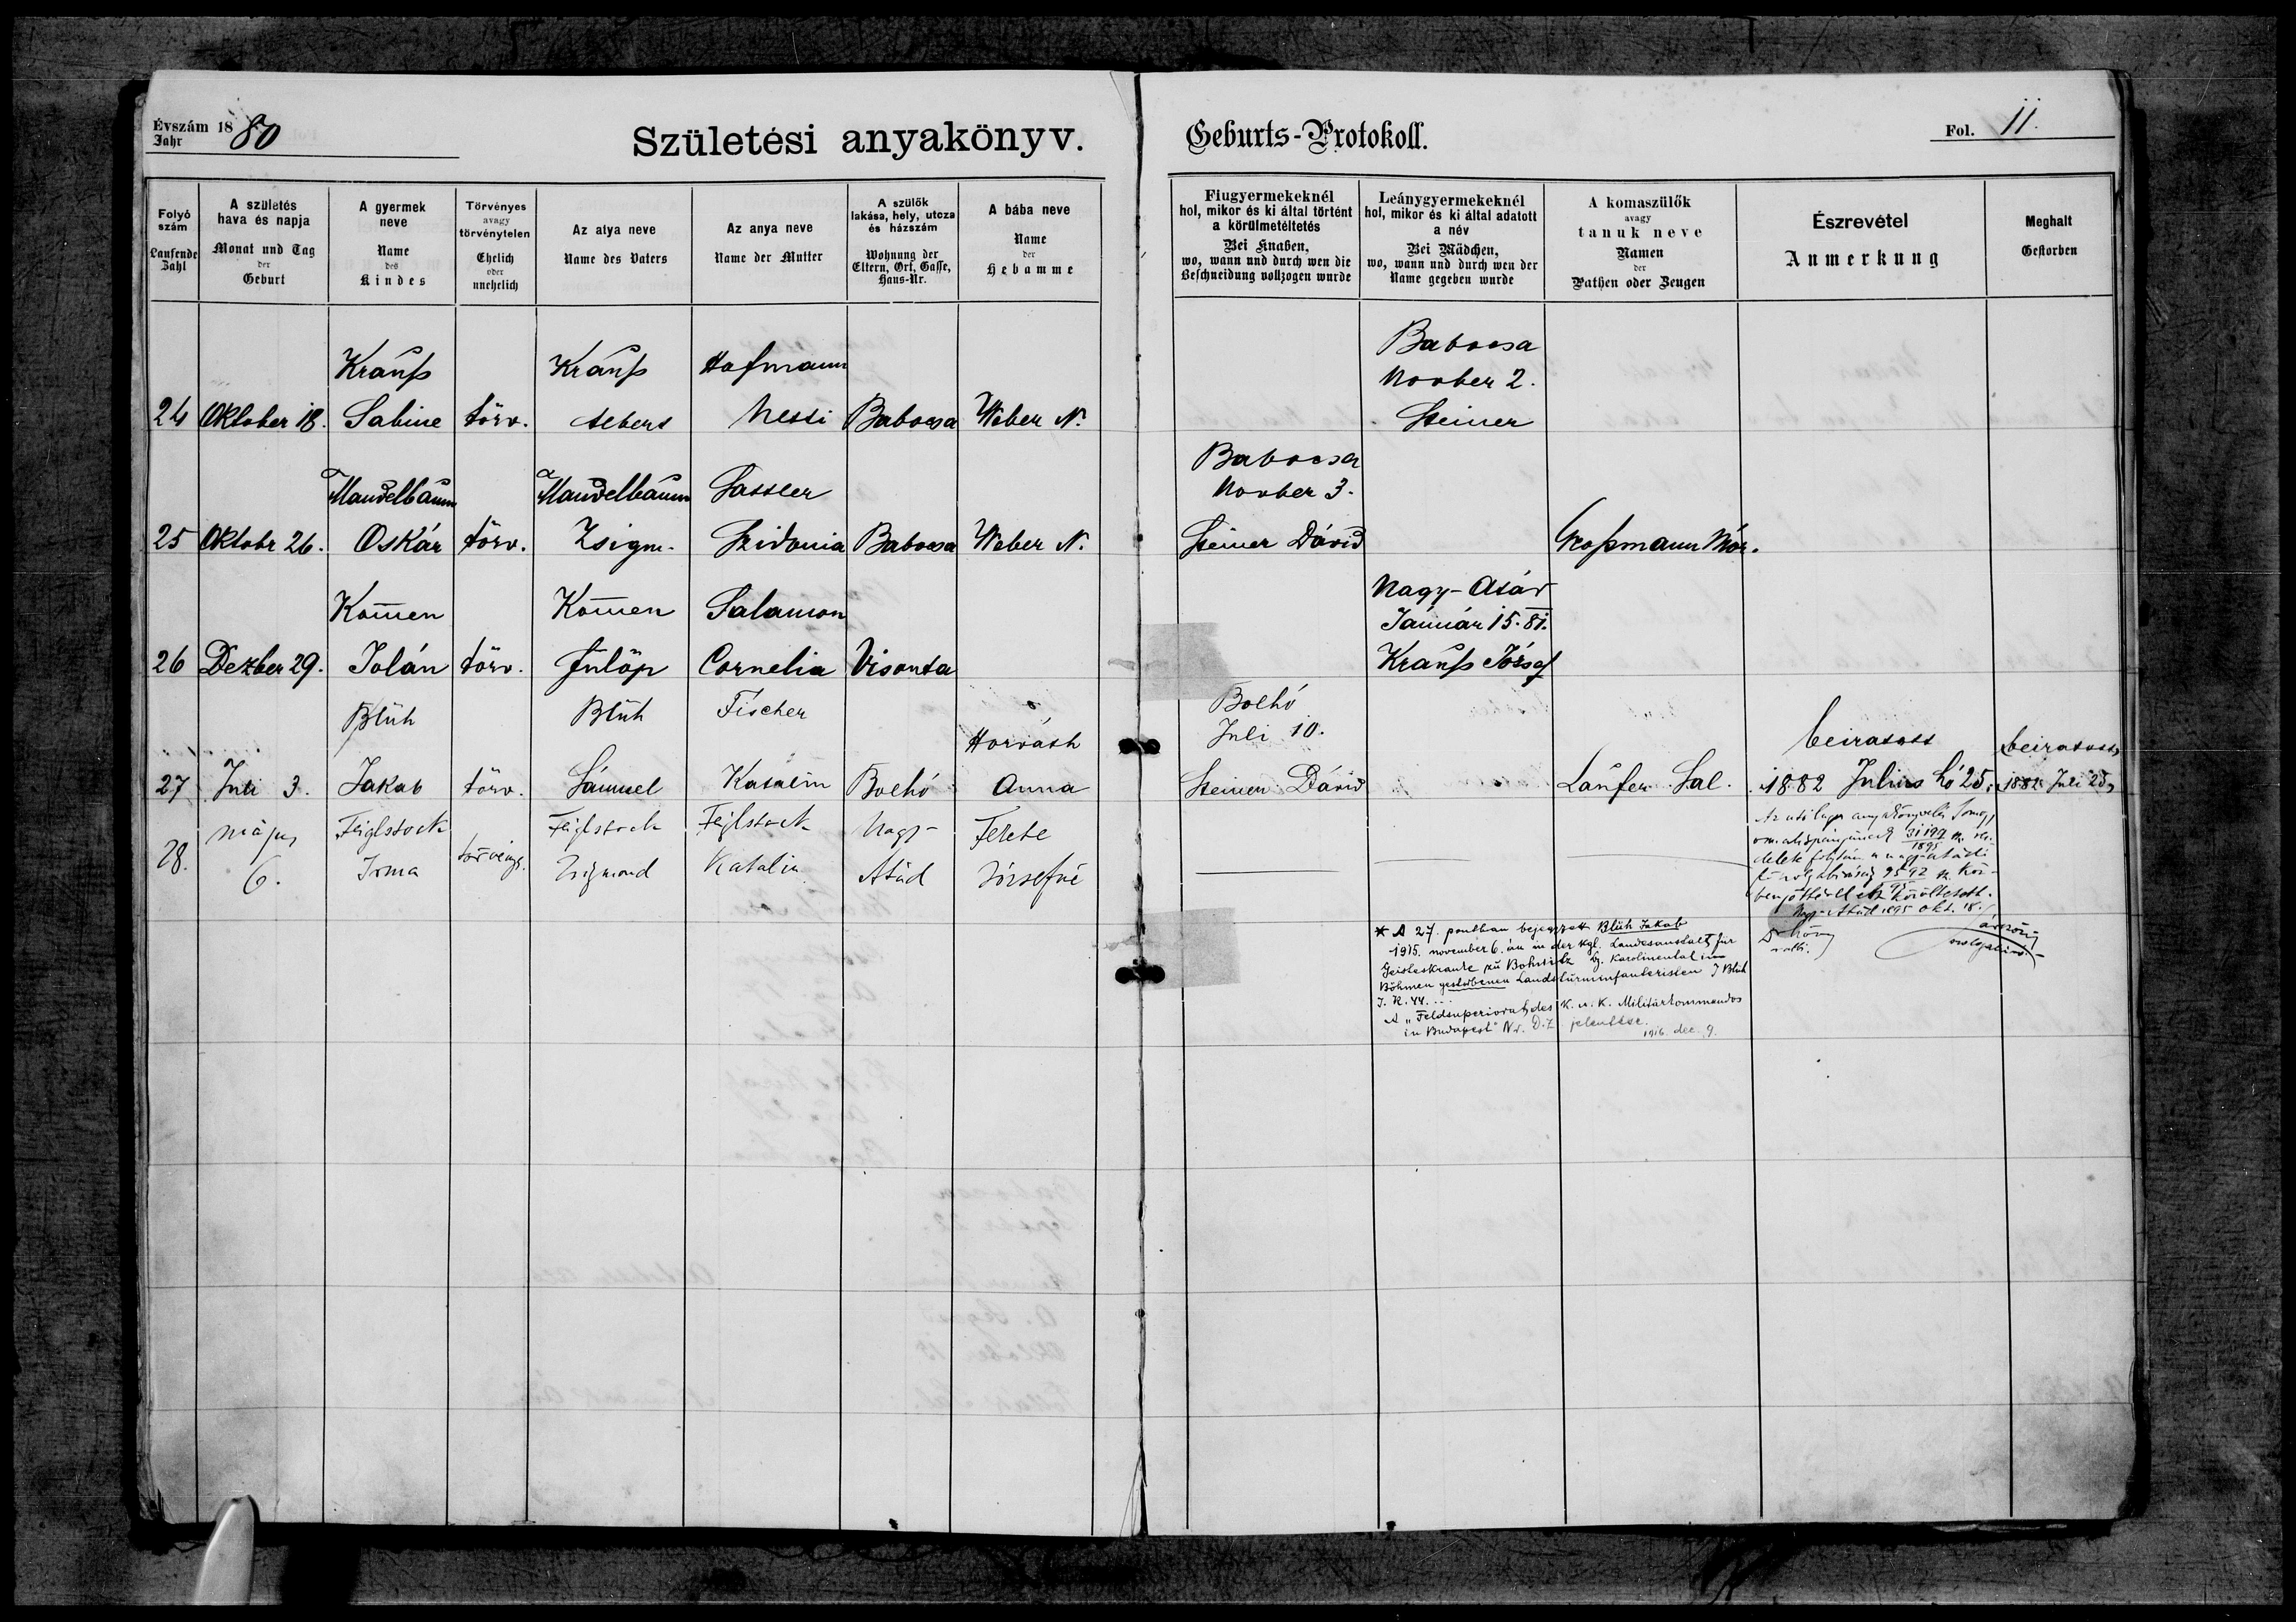 Évszám 18 80
Jahr
Születési anyakönyv.
Geburts-Protokoll.
Fol. 11.
Folyó szám
Laufende Zahl
A születés hava és napja
Monat und Tag der Geburt
A gyermek neve
Name des Kindes
Törvényes avagy törvénytelen
Ehelich oder unehelich
Az atya neve
Name des Vaters
Az anya neve
Name der Mutter
A szülők lakása, hely, utcza és házszám
Wohnung der Eltern, Ort, Gasse, Haus-Nr.
A bába neve
Name der Hebamme
Fiugyermekeknél hol, mikor és ki által történt a körülmetéltetés
Bei Knaben, wo, wann und durch wen die Beschneidung vollzogen wurde
Leánygyermekeknél hol, mikor és ki által adatott a név
Bei Mädchen, wo, wann und durch wen der Name gegeben wurde
A komaszülők avagy tanuk neve
Namen der Pathen oder Zeugen
Észrevétel
Anmerkung
Meghalt
Gestorben
24 Oktober 18. Krauß Sabine törv. Krauß Hofmann Nessi Babocsa Weber N. Babocsa Novber 2. Steiner
25 Oktobr 26. Mandelbaum Oskár törv. Mandelbaum Zsigm. Sassler Szidonia Babocsa Weber N. Babocsa Novber 3. Steiner Dávid Großmann Mór.
26 Dezber 29. Kom̄en Jolán törv. Kom̄en Fülöp Salamon Cornelia Visonta Nagy-Atád Január 15. 81. Krauß József
27 Juli 3. Blüh Jakab törv. Blüh Sámuel Fischer Katalin Bolhó Horváth Anna Bolhó Juli 10. Steiner Dávid Laufer Sal. beiratott 1882 Julius hó 25. beiratott 1882 Juli 25
28. május 6. Feiglstock Irma törvénys. Feiglstock Zsigmond Feiglstock Katalin Nagy-Atád Fekete Józsefné
Nagy-Atád 1895 okt. 18.
* A 27. pontban bejegyzett Blüh Jakab
1915. november 6. án in der kgl. Landesanstalt für
Geisteskranke zu Bohnitz Karolinental in
Böhmen gestorbenen Landsturminfanteristen J Blüh
J. R. 44. ...
A "Feldsuperiorat des K. u. K. Militärkommandos
in Budapest" Nr. D.Z. jelentése.
1916. dec. 9.